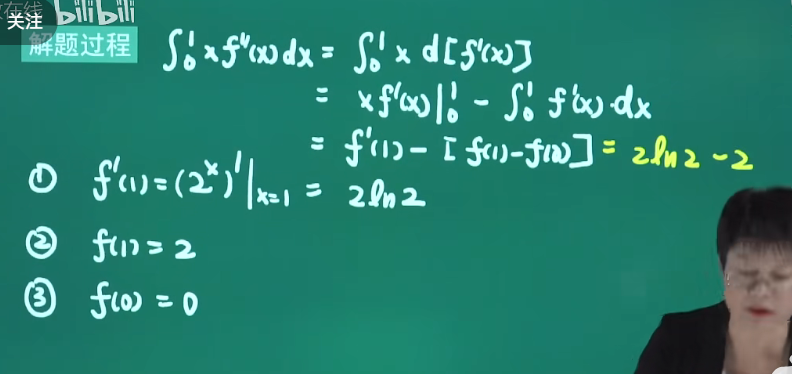 在线 bilibili
关注
解题过程
∫₀¹ x f''(x) dx = ∫₀¹ x d[f'(x)]
= x f'(x)|₀¹ - ∫₀¹ f'(x)·dx
= f'(1) - [f(1) - f(0)] = 2ln2 - 2
① f'(1) = (2ˣ)'|ₓ₌₁ = 2ln2
② f(1) = 2
③ f(0) = 0